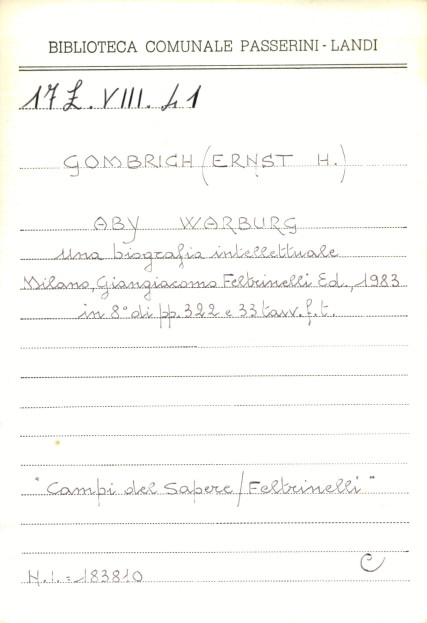 BIBLIOTECA COMUNALE PASSERINI - LANDI
17 Z. VIII. 41
GOMBRICH (ERNST H.)
ABY WARBURG
una biografia intellettuale
Milano, Giangiacomo Feltrinelli Ed., 1983
in 8° di pp. 322 e 33 tavv. f. t.
"Campi del Sapere/Feltrinelli"
C
N.I. = 183810